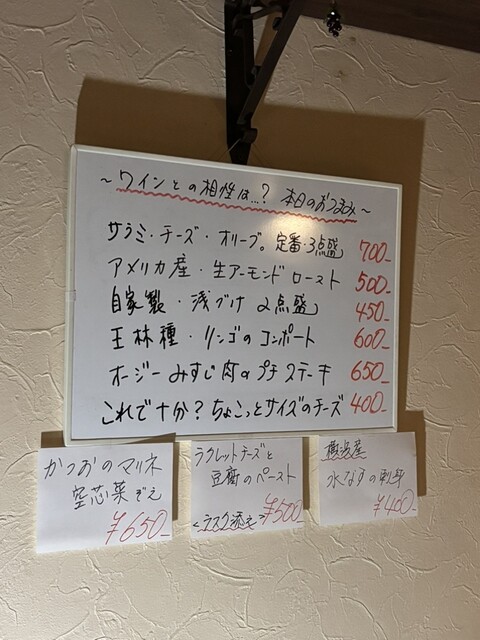 ～ワインとの相性は…? 本日のおつまみ～
サラミ・チーズ・オリーブ。定番・3点盛 700-
アメリカ産・生アーモンドロースト 500-
自家製・浅づけ 2点盛 450-
王林種・リンゴのコンポート 600-
オージーみすじ肉のプチステーキ 650-
これで十分?ちょこっとサイズのチーズ 400-
かつおのマリネ
空芯菜ぞえ
¥650-
ラクレットチーズと
豆腐のペースト
<ラスク添え> ¥500-
横浜産
水なすの刺身
¥400-